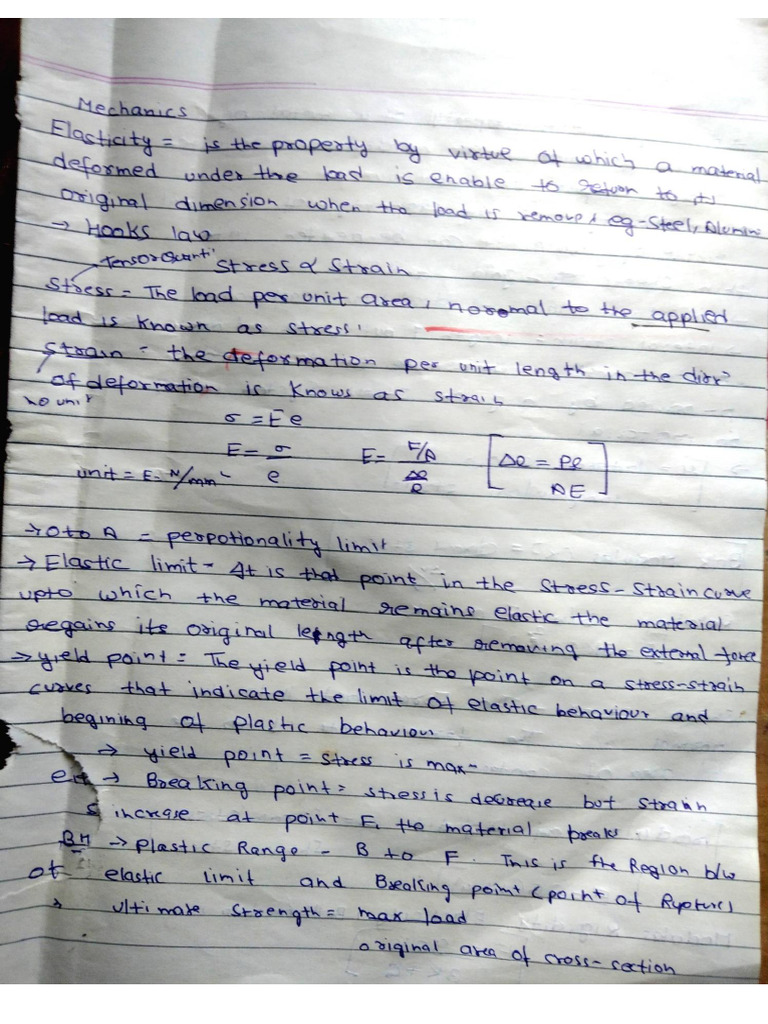 Mechanics
Elasticity = is the property by virtue of which a material
deformed under the load is enable to return to
original dimension when the load is remove, eg-Steel, Alumin
→ Hooks law
Stress ∝ Strain
Stress = The load per unit area, noromal to the applied
load is known as stress.
Strain = the deformation per unit length in the
of deformation is knows as strain
no unit
σ = Ee
E = σ/e E = (F/A)/(Δl/l) [Δl = Pl/AE]
unit = E = N/mm²
→ O to A = perpotionality limit
→ Elastic limit - It is that point in the stress-strain curve
upto which the material remains elastic the material
regains its original length after removing the external force
→ yield point = The yield point is the point on a stress-strain
curves that indicate the limit of elastic behaviour and
begining of plastic behaviour
⇒ yield point = stress is max-
→ Breaking point = stress is decrease but strain
increase at point F, the material breaks.
→ Plastic Range - B to F. This is the Region b/w
elastic limit and Breaking point (point of Rupture)
ultimate strength = max load
original area of cross-section